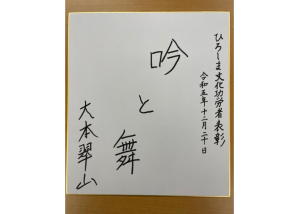 ひろしま文化功労者表彰
令和五年十二月二十日
吟
と
舞
大本翠山